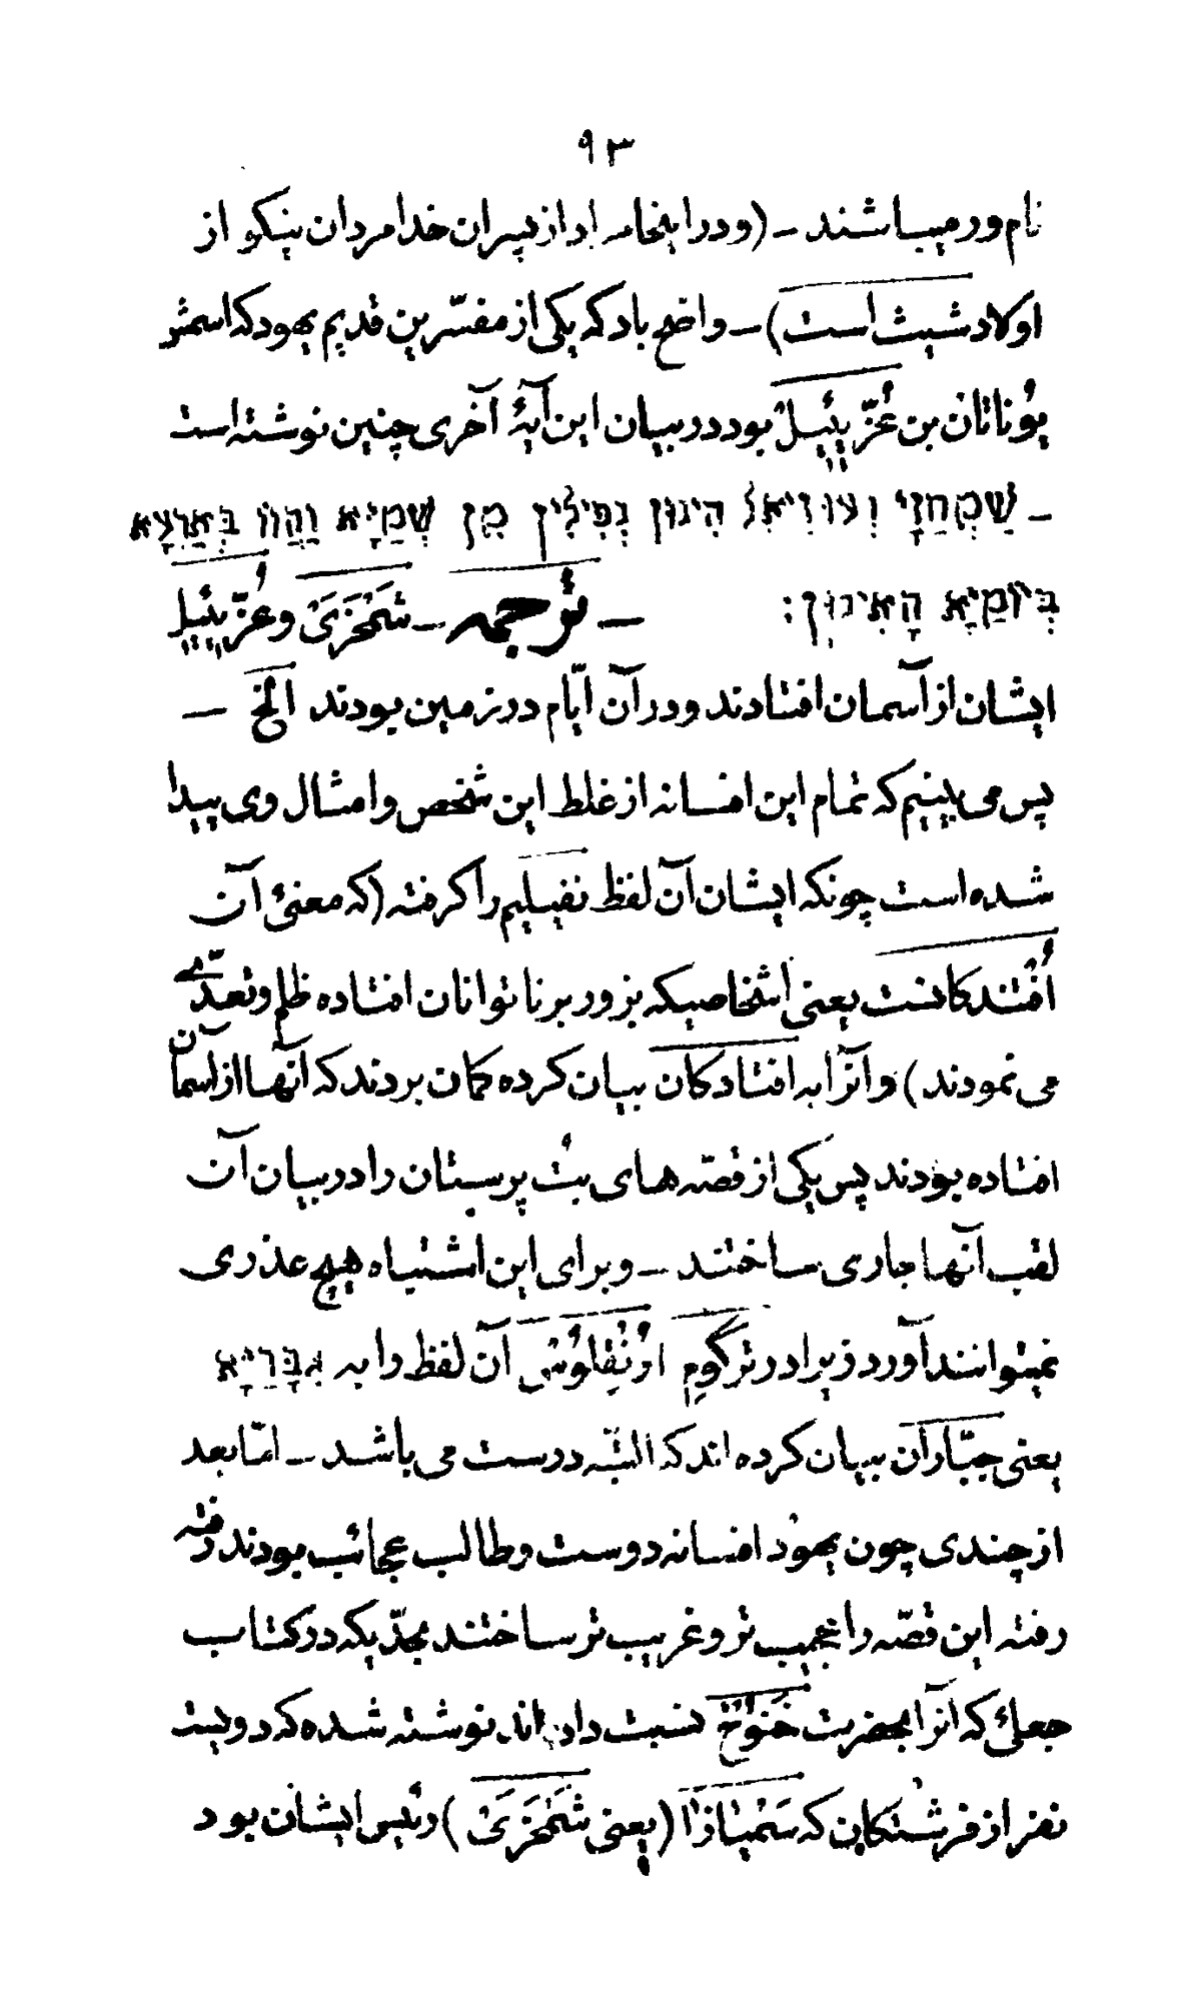 ۹۳
نام ور میباشند ـ (و در اینجا مراد از پسران خدا مردان نیکو از
اولاد شیث است) ـ واضح باد که یکی از مفسّرین قدیم یهود که اسمش
یُوناتان بن عُزّیئیل بود در بیان این آیهٔ آخری چنین نوشته است
ـ שַׁמְחֲזָי וְעוּזִיאֵל הִינוּן נְפִילִין מִן שְׁמַיָּא וַהֲווֹ בְּאַרְעָא
בְּיוֹמַיָּא הָאִינוּן: ـ تُرجمه ـ شَمْحَزَیْ و عُزّیئیل
ایشان از آسمان افتادند و در آن ایّام در زمین بودند الخ ـ
پس می بینیم که تمام این افسانه از غلط این شخص و امثال وی پیدا
شده است چونکه ایشان آن لفظ نفیلیم را گرفته (که معنیٔ آن
اُفتندکانست یعنی اشخاصیکه بزور بر ناتوانان افتاده ظلم و تعدّی
می نمودند) و آنرا به افتادکان بیان کرده گمان بردند که آنها از آسمان
افتاده بودند پس یکی از قصّه های بُت پرستان را در بیان آن
لقب آنها جاری ساختند ـ و برای این اشتباه هیچ عذری
نمیتوانند آورد زیرا در ترگومِ اُونْقِلُوسْ آن لفظ را به גִּבָּרַיָּא
یعنی جبّاران بیان کرده اند که البتّه درست می باشد ـ امّا بعد
از چندی چون یهُود افسانه دوست و طالب عجائب بودند رفته
رفته این قصّه را عجیب تر و غریب تر ساختند بحدّیکه در کتاب
جعلیٔ که آنرا بحضرت خَنُوْخْ نسبت داده اند نوشته شده که دویست
نفر از فرشتکان که سَمْیٰازٰا (یعنی شَمْحَزَیْ) رئیس ایشان بود